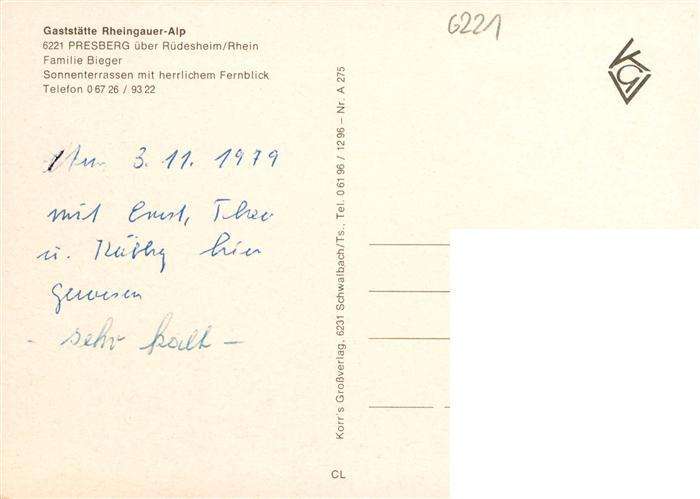 Gaststätte Rheingauer-Alp
6221 PRESBERG über Rüdesheim/Rhein
Familie Bieger
Sonnenterrassen mit herrlichem Fernblick
Telefon 0 67 26 / 93 22
6221
Am 3. 11. 1979
mit Ernst, Theo
u. Käthy hier
gewesen
- sehr kalt -
Korr's Großverlag, 6231 Schwalbach/Ts., Tel. 0 61 96 / 12 96 – Nr. A 275
CL